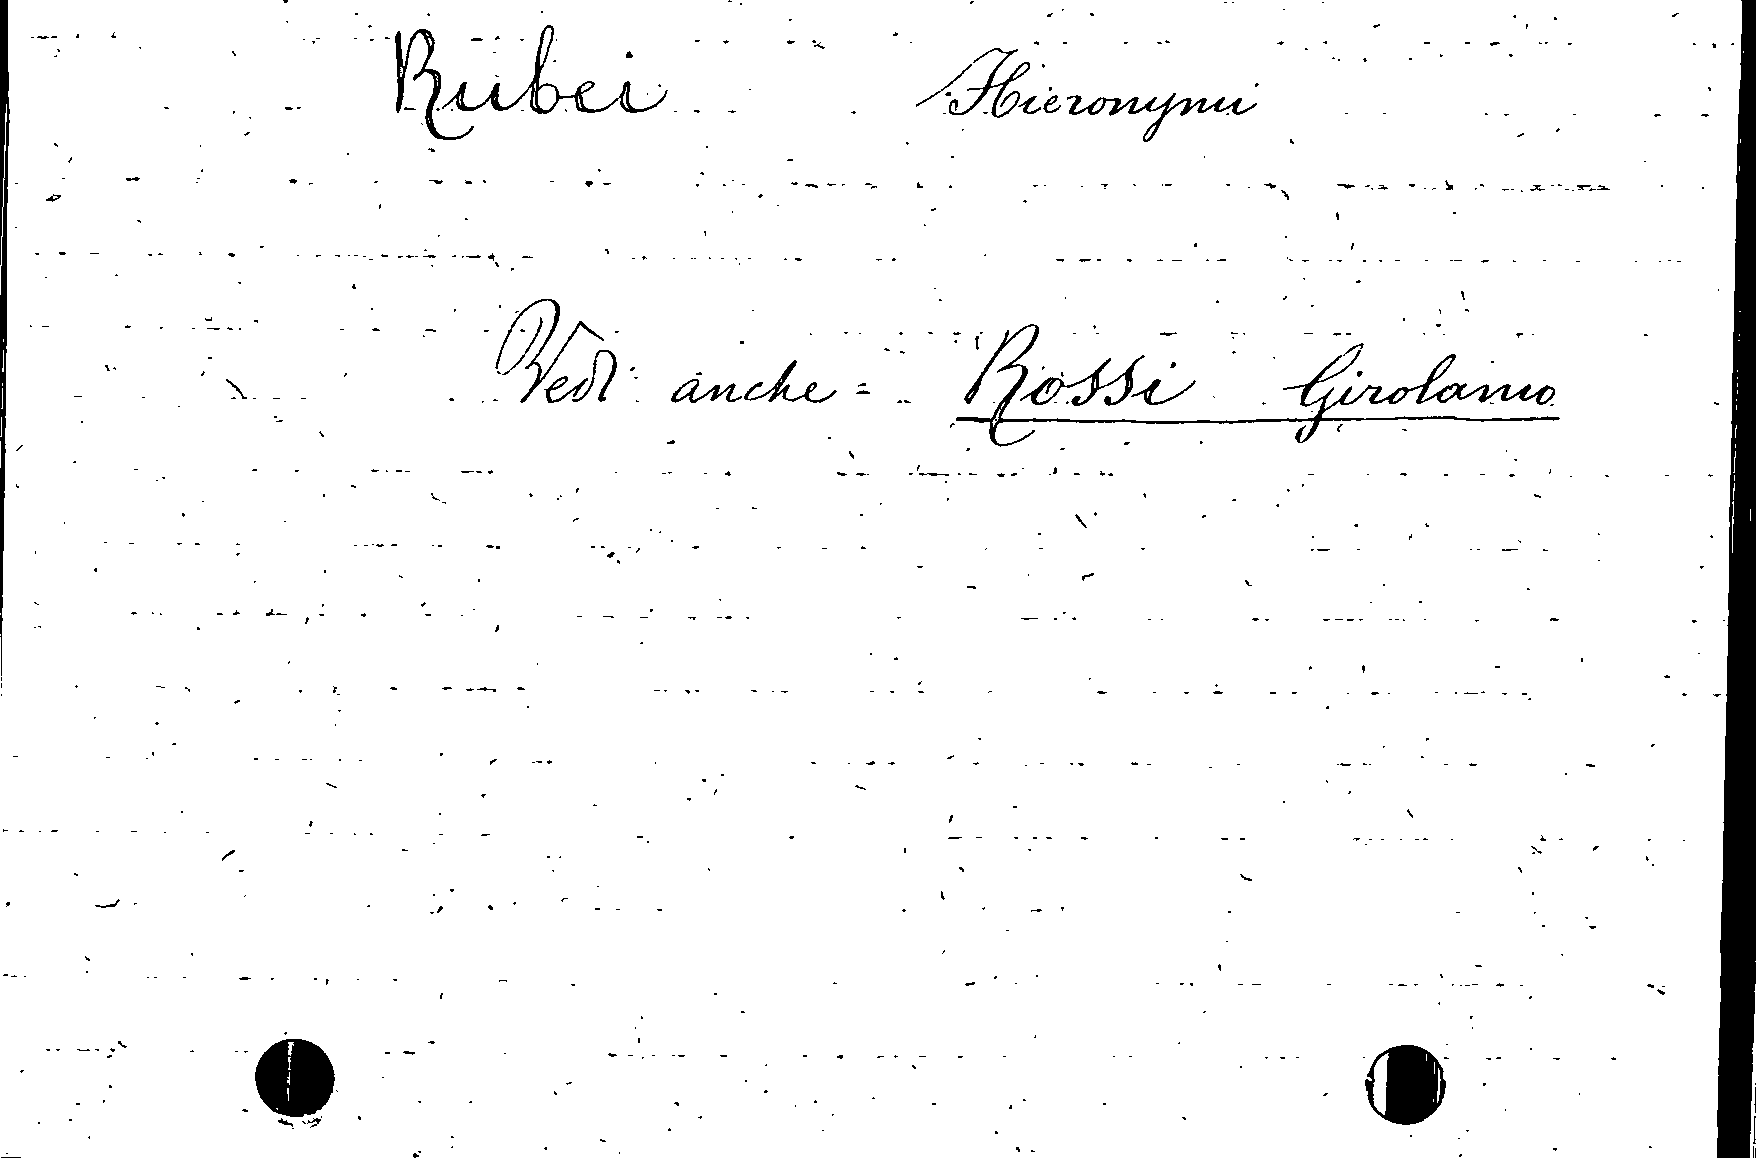 Rubei Hieronymi
Vedi anche = Rossi Girolamo